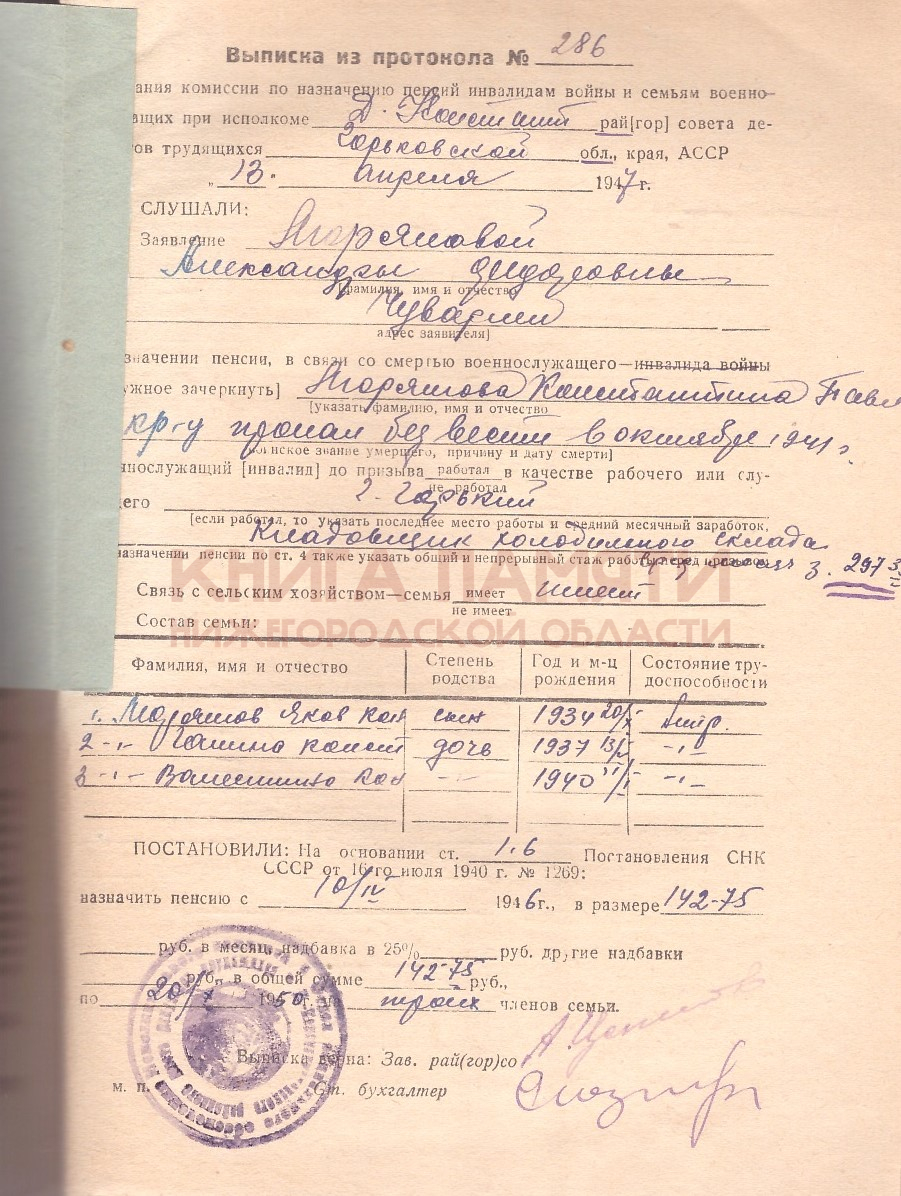 Выписка из протокола № 286
ания комиссии по назначению пенсий инвалидам войны и семьям военно-
ащих при исполкоме Д. Констант рай[гор] совета де-
ов трудящихся Горьковской обл., края, АССР
„ 13 " апреля 1947 г.
СЛУШАЛИ:
Заявление
Александры Федоровны
[фамилия, имя и отчество
Чуварлей
адрес заявителя]
значении пенсии, в связи со смертью военнослужащего—инвалида войны
ужное зачеркнуть] Константина Павл
[указать фамилию, имя и отчество
кр-у пропал без вести в октябре 1941 г.
воинское звание умершего, причину и дату смерти]
ннослужащий [инвалид] до призыва работал в качестве рабочего или слу-
не работал
его г. Горький
[если работал, то указать последнее место работы и средний месячный заработок,
Кладовщик холодильного склада
назначении пенсии по ст. 4 также указать общий и непрерывный стаж работы перед призывом
з. 297
КНИГА ПАМЯТИ
Связь с сельским хозяйством—семья имеет имеет
не имеет
НИЖЕГОРОДСКОЙ ОБЛАСТИ
Состав семьи:
Фамилия, имя и отчество Степень родства Год и м-ц рождения Состояние тру-доспособности
1. Яков Кон сын 1934 20/X
2 -"- Галина Конст дочь 1937 -"-
3 -"- Валентина Кон -"- 1940 -"-
ПОСТАНОВИЛИ: На основании ст. 1.6 Постановления СНК
СССР от 16-го июля 1940 г. № 1269:
назначить пенсию с 10/IV 1946 г., в размере 142-75
руб. в месяц, надбавка в 25% руб. другие надбавки
руб., в общей сумме 142-75 руб.,
по 20/X 1950 г. на троих членов семьи.
Выписка верна: Зав. рай(гор)со
м. п. Ст. бухгалтер